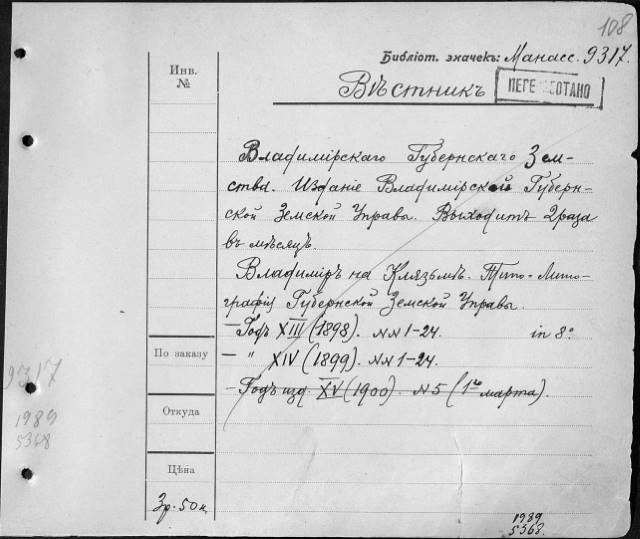 108
Библіот. значекъ: Манасс. 9317.
Инв.
№
Вѣстникъ
Владимірскаго Губернскаго Зем-
ства. Изданіе Владимірской Губерн-
ской Земской Управы. Выходитъ 2 раза
въ мѣсяцъ.
Владиміръ на Клязьмѣ. Типо-Лито-
графія Губернской Земской Управы.
— Годъ XIII (1898). NN 1-24. in 8°
По заказу
— " XIV (1899). NN 1-24.
— Годъ изд. XV (1900). N 5 (1го марта).
9317
Откуда
1989
5368
Цѣна
3р. 50к.
1989
5368.